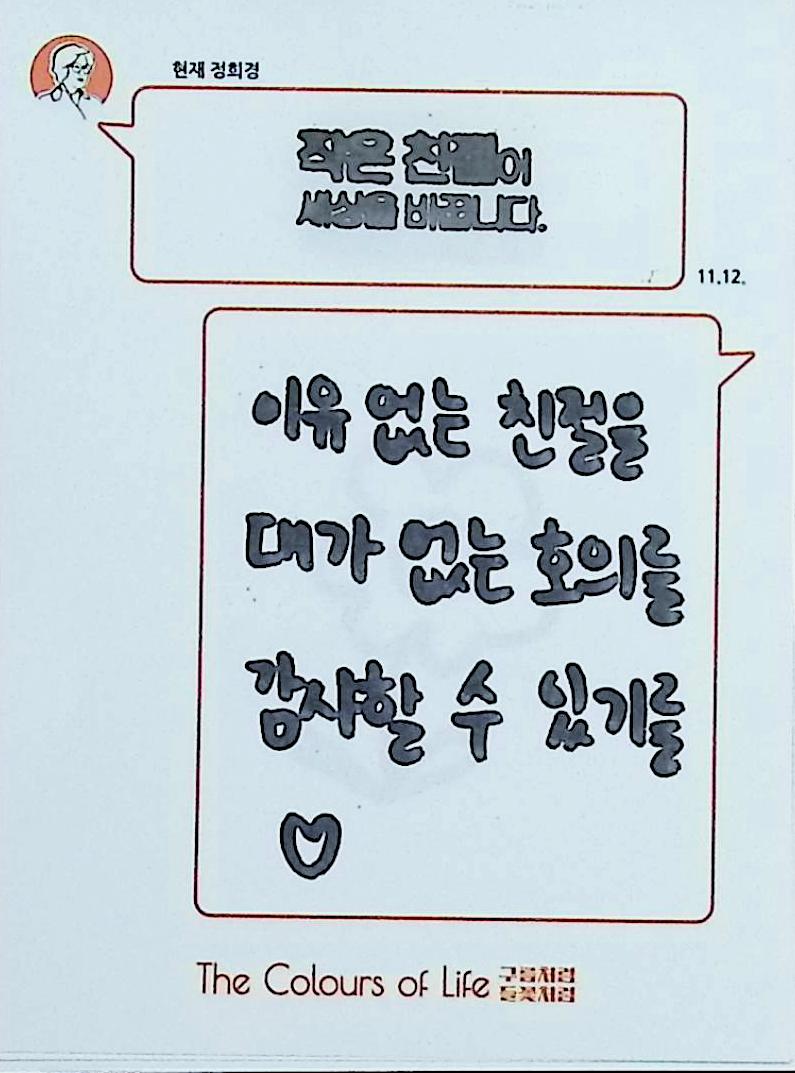 현재 정희경
작은 친절이
세상을 바꿉니다.
11.12.
이유 없는 친절을
대가 없는 호의를
감사할 수 있기를
The Colours of Life 구름처럼
들꽃처럼